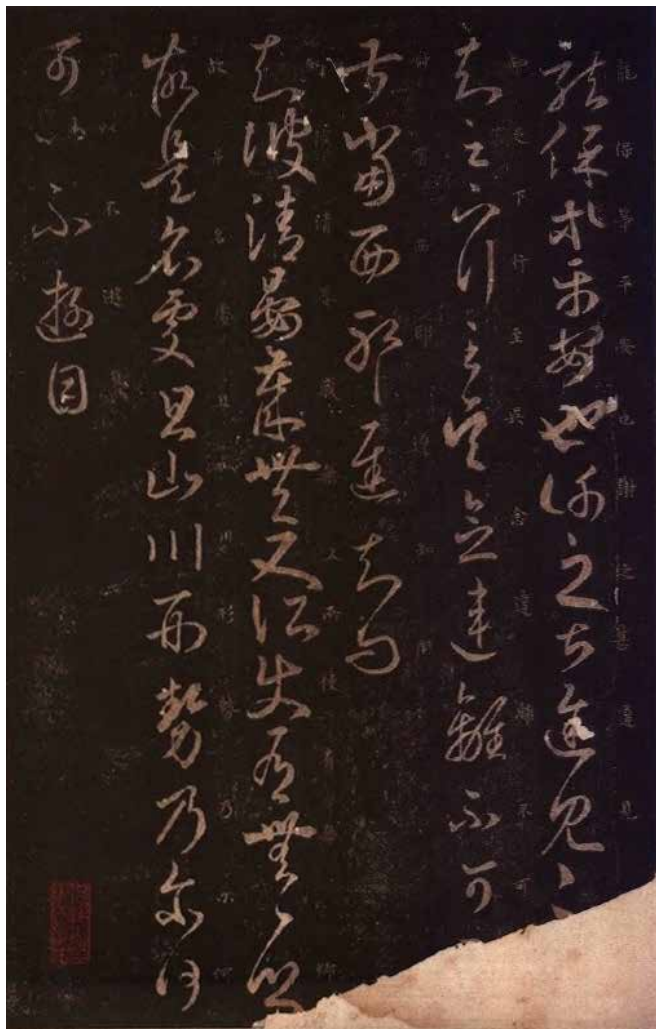 龍保等平安也謝之甚遲見
知足下行至吳念違離不可
叔當西耶遲知問
知彼清晏歲豐又所使有無一鄉
故是名處且山川形勢乃爾何
可以不遊目